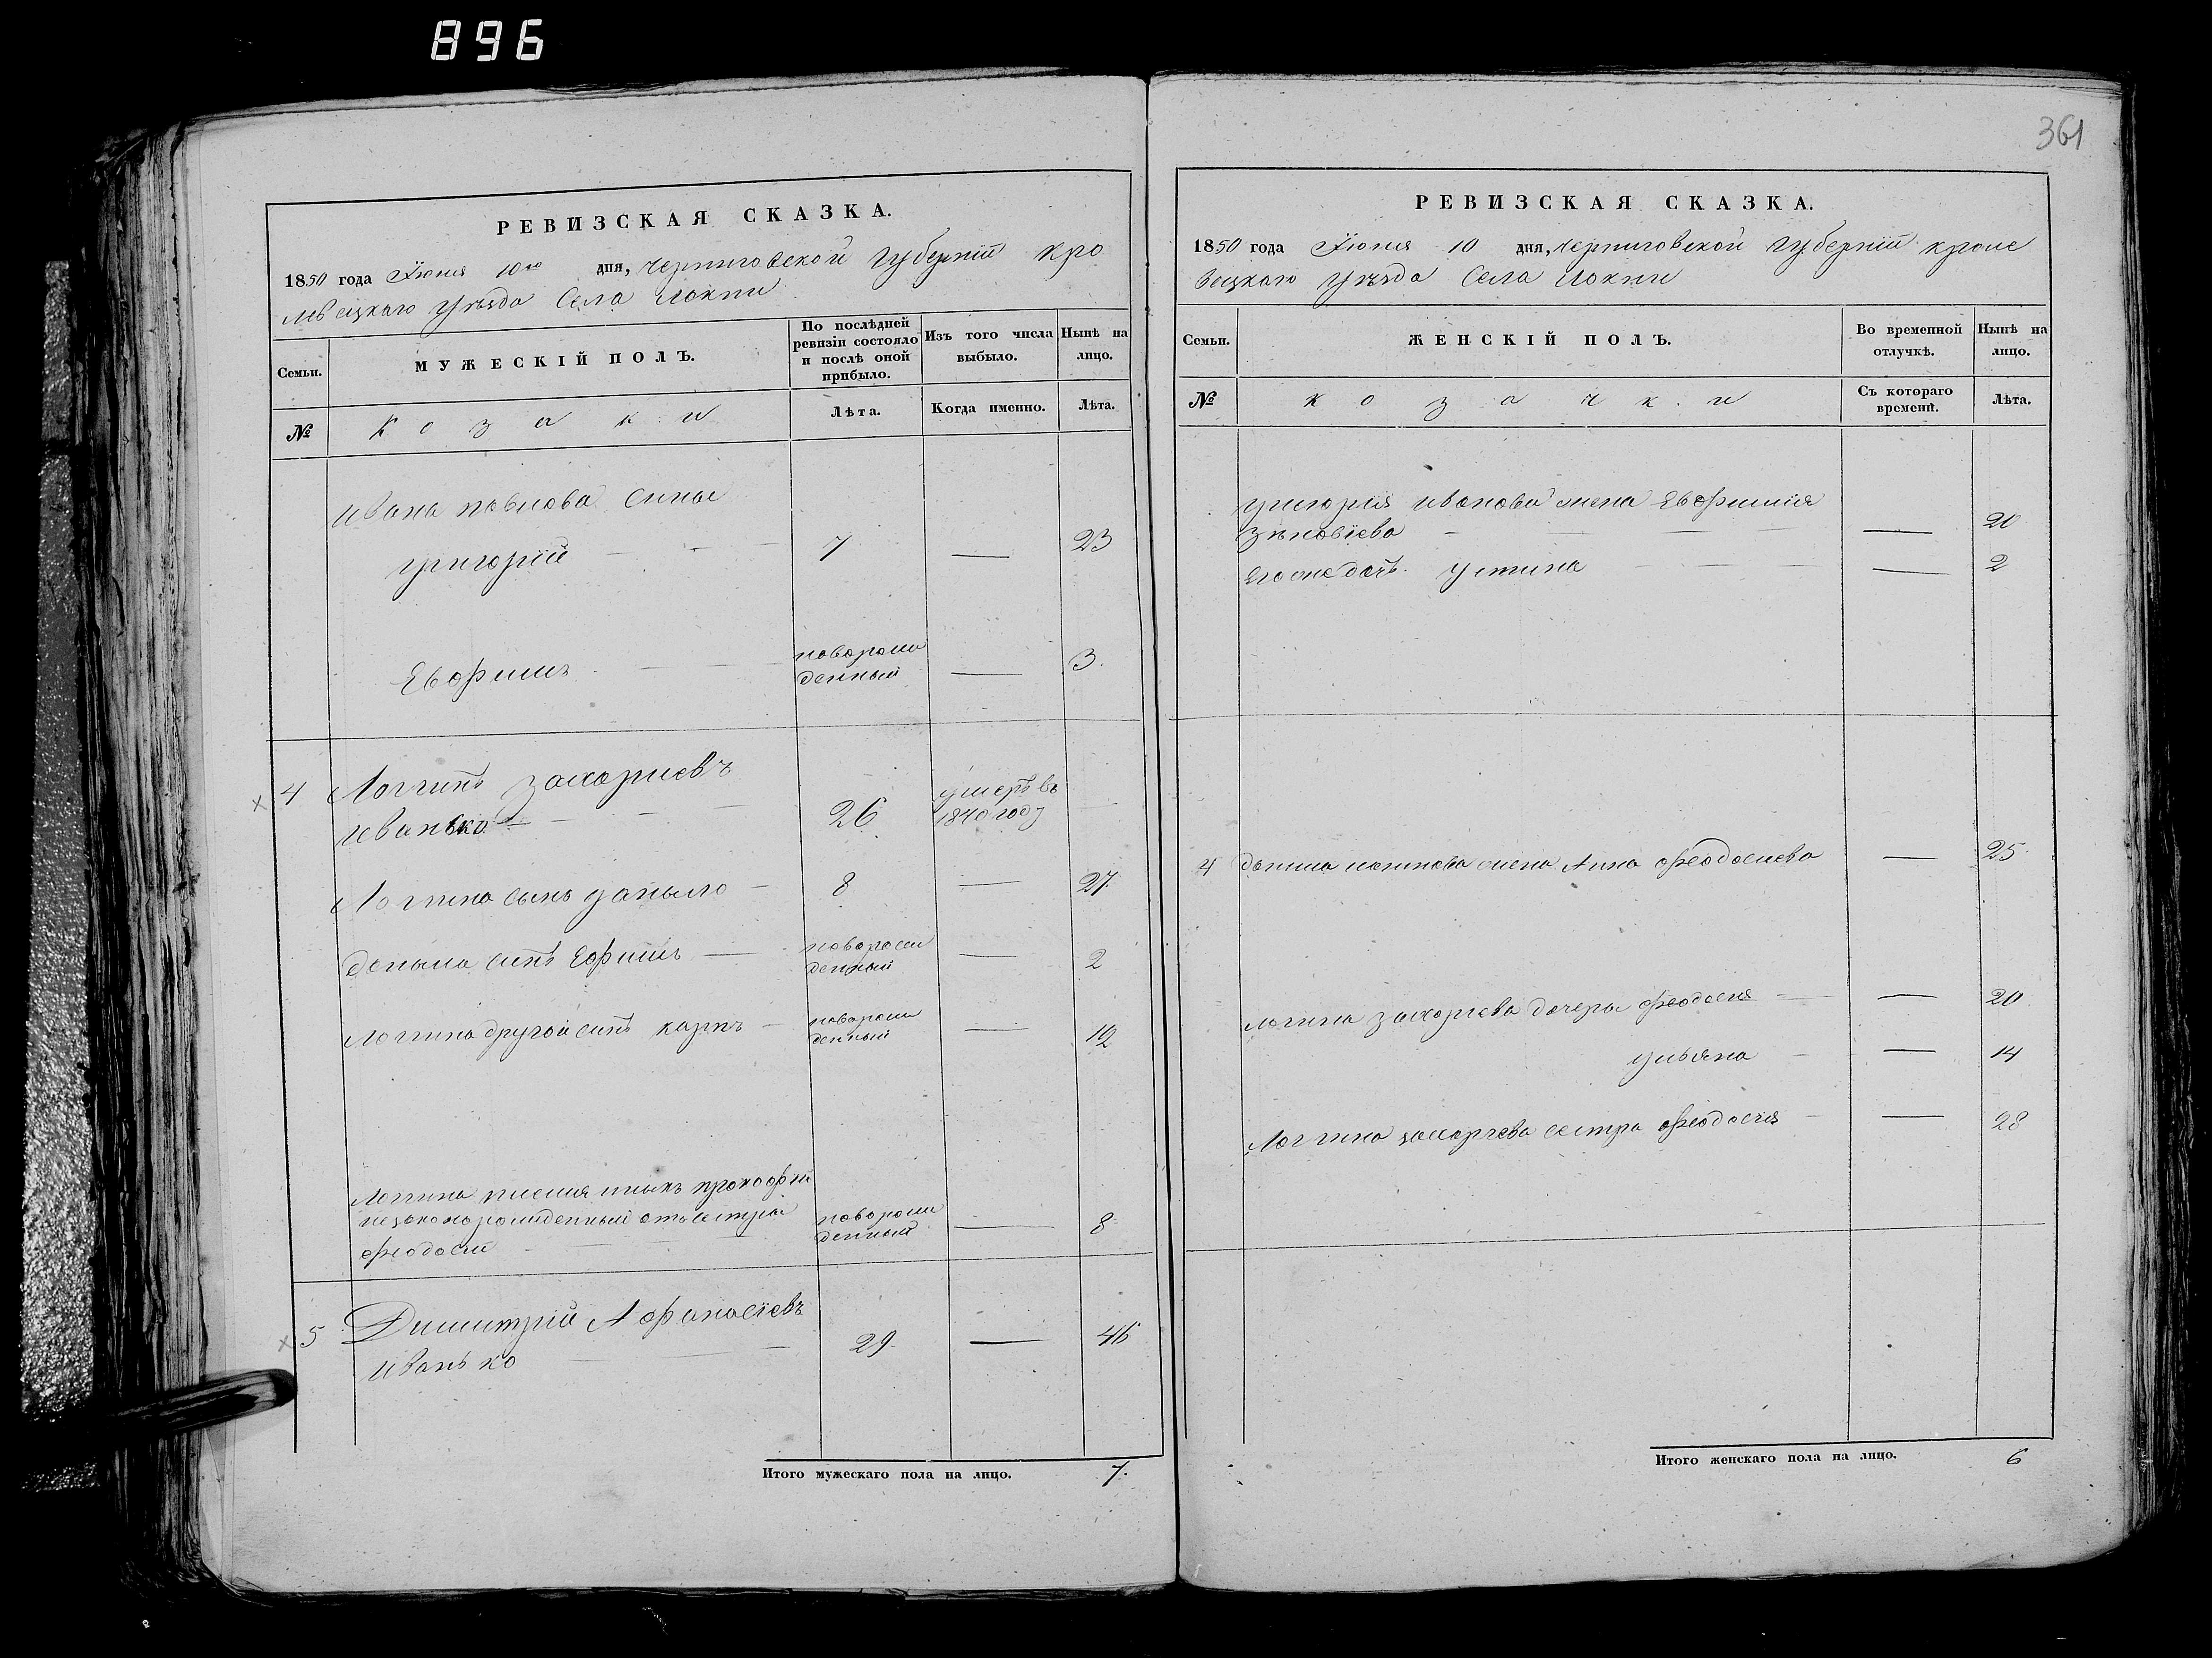 896
361
РЕВИЗСКАЯ СКАЗКА.
1850 года Іюня 10го дня, Черниговской Губерніи Кро
левецкаго уѣзда Села Локни
Семьи.
МУЖЕСКІЙ ПОЛЪ.
По послѣдней ревизіи состояло и послѣ оной прибыло.
Изъ того числа выбыло.
Нынѣ на лицо.
№
Козаки
Лѣта.
Когда именно.
Лѣта.
Ивана павлова сины
григорій 7 — 23
Евфимъ новорожденный — 3.
4 Логгинъ захариевъ
Иванько 26 умеръ въ 1840 году
Логгина сынъ данило — 8 — 27.
данила синъ Ефимъ — новорожденный — 2
Логгина другой синъ карпъ — новорожденный — 12
Логгина племянникъ прокофій
незаконорожденный отъ сестри
феодосіи новорожденный — 8
5 Димитрій Афанасіевъ
Иванько 29. — 46
Итого мужескаго пола на лицо. 7.
РЕВИЗСКАЯ СКАЗКА.
1850 года Іюня 10 дня, Черниговской Губерніи Кроле
вецкаго уѣзда Села Локни
Семьи.
ЖЕНСКІЙ ПОЛЪ.
Во временной отлучкѣ.
Нынѣ на лицо.
№
Козачки
Съ котораго времени.
Лѣта.
григорія иванова жена Евфимія
Зѣновіева — 20
Егоже дочь Устина — 2
4 данила логинова жена Анна феодосиева — 25
логина захариева дочери феодосия — 20
ульяна — 14
Логгина захариева сестра феодосия — 28
Итого женскаго пола на лицо. 6